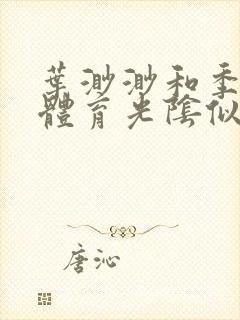 葉渺渺和季
體育光陰似
唐沁